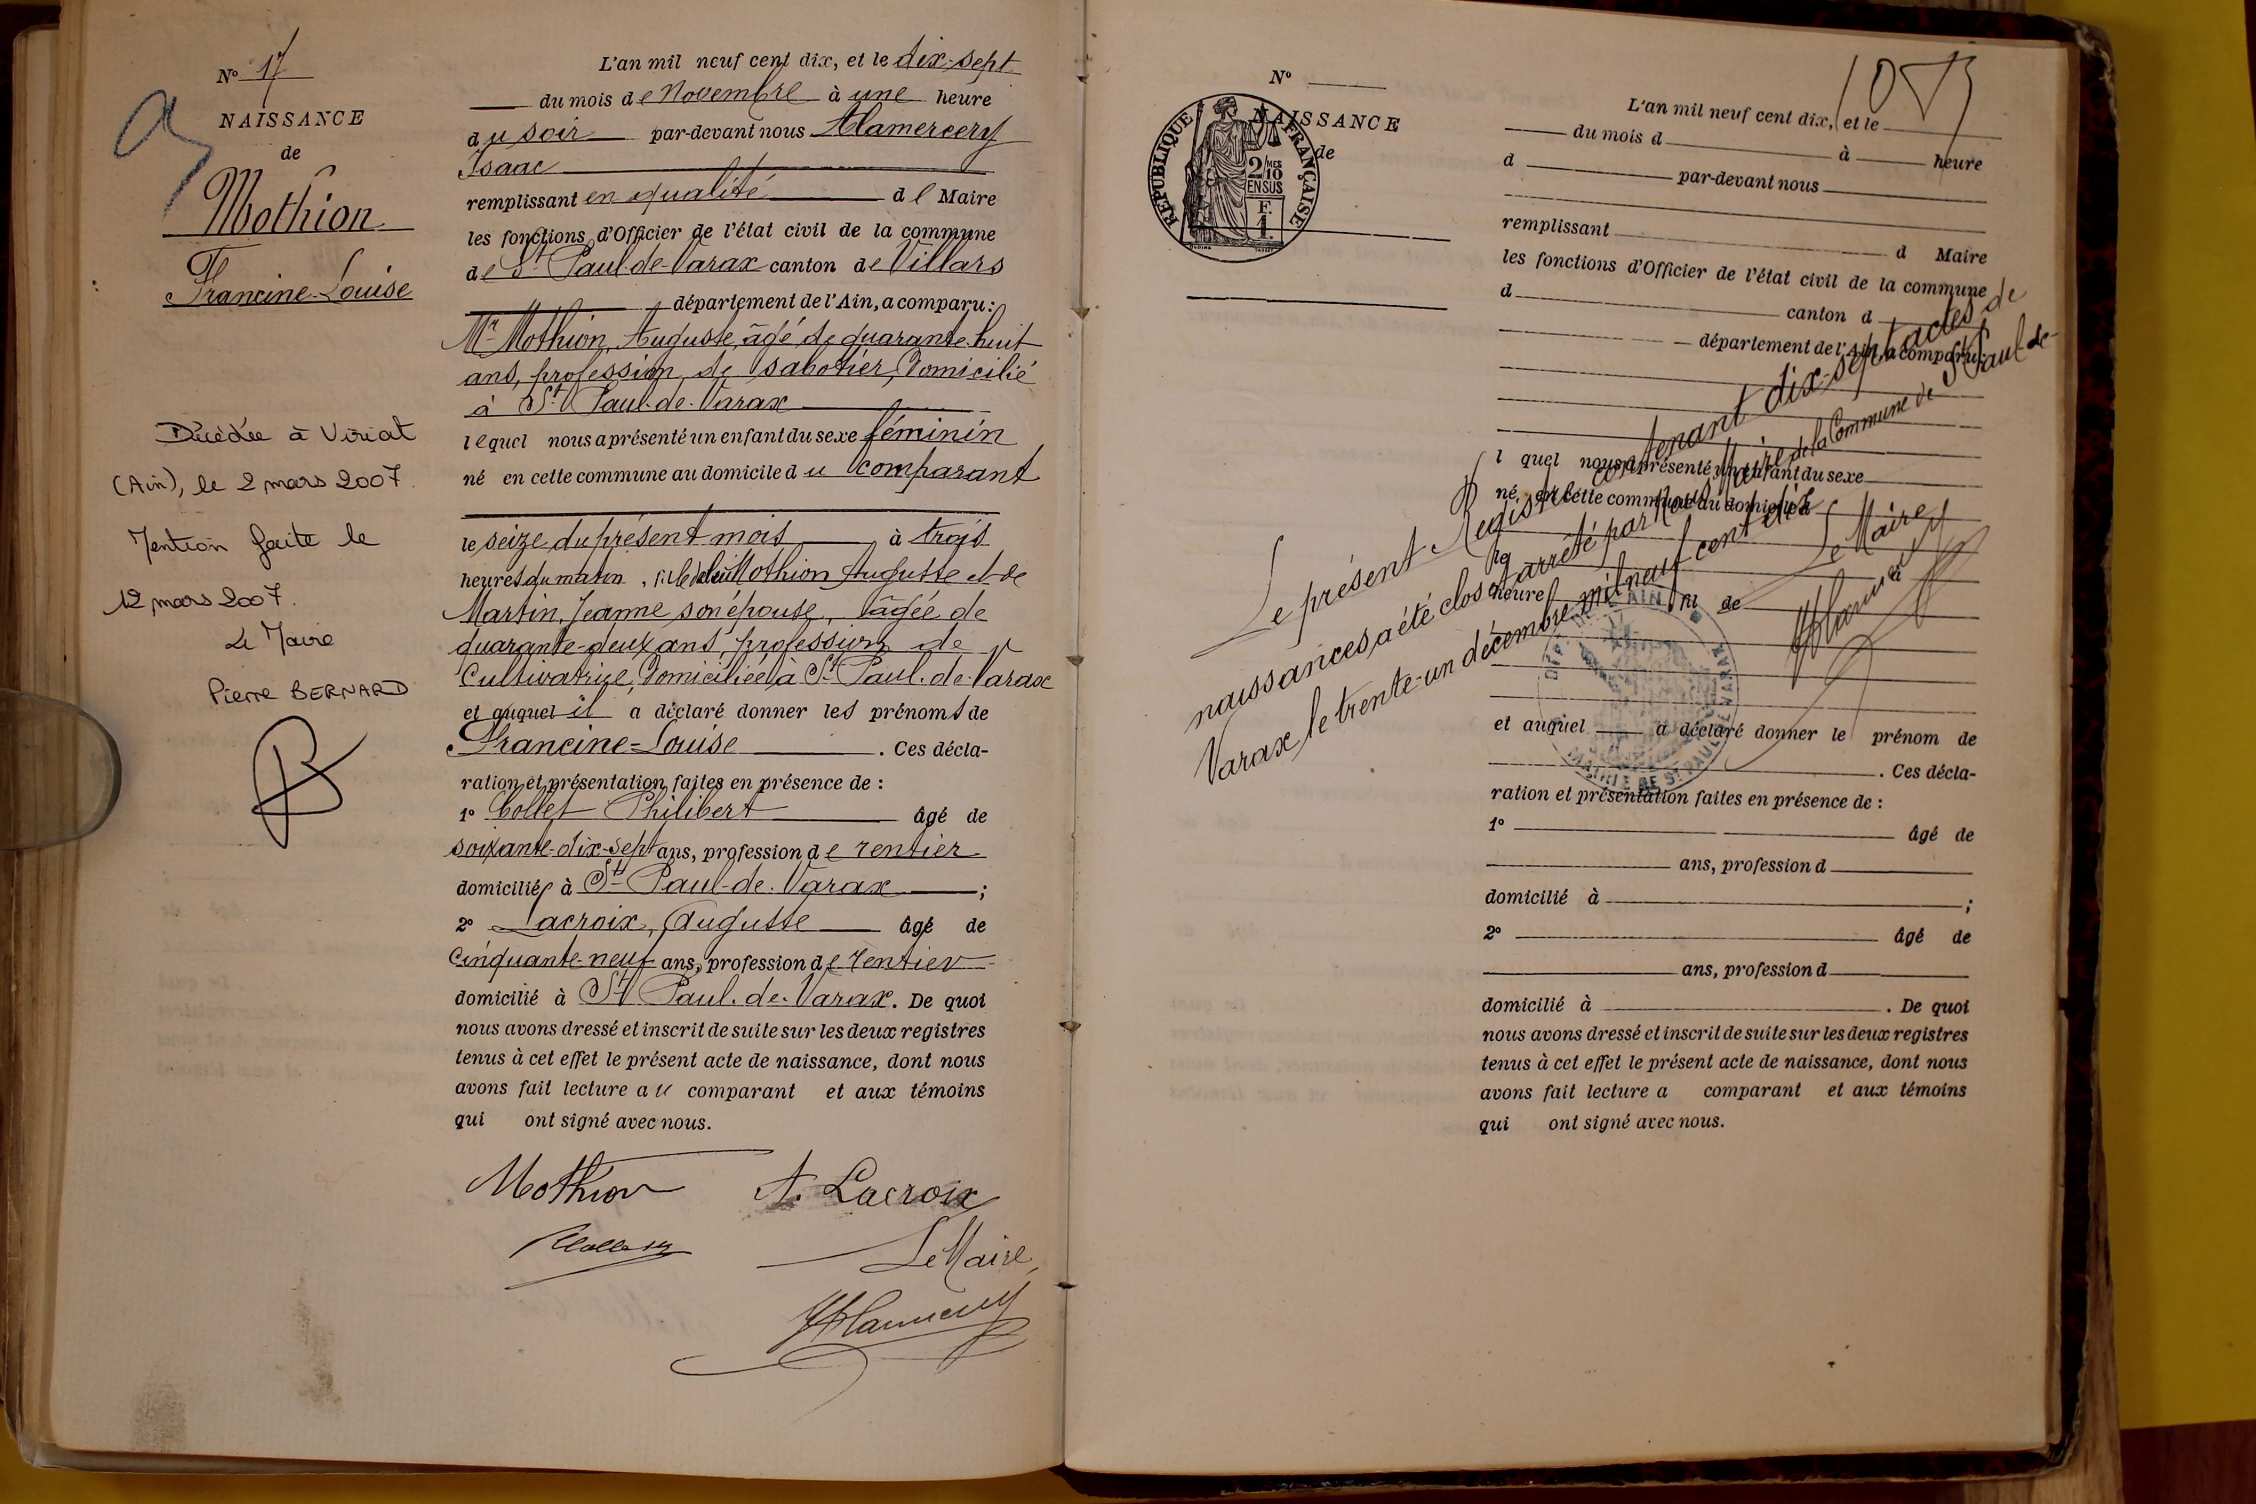 N° 17
NAISSANCE
de
Mothion
Francine-Louise
Décédée à Viriat
(Ain), le 2 mars 2007.
Mention faite le
12 mars 2007.
Le Maire
Pierre BERNARD
L'an mil neuf cent dix, et le dix-sept
du mois de Novembre à une heure
du soir par-devant nous Alamercery
Isaac
remplissant en qualité de Maire
les fonctions d'Officier de l'état civil de la commune
de St Paul-de-Varax canton de Villars
département de l'Ain, a comparu :
Mr Mothion, Auguste, âgé de quarante-huit
ans, profession de sabotier, domicilié
à St Paul-de-Varax
lequel nous a présenté un enfant du sexe féminin
né en cette commune au domicile du comparant
le seize du présent mois à trois
heures du matin, fille de lui Mothion Auguste et de
Martin, Jeanne son épouse, âgée de
quarante-deux ans, profession de
Cultivatrice, domiciliée à St Paul-de-Varax
et auquel il a déclaré donner les prénoms de
Francine-Louise . Ces décla-
ration et présentation faites en présence de :
1° Collet Philibert âgé de
soixante-dix-sept ans, profession de rentier
domicilié à St Paul-de-Varax ;
2° Lacroix, Auguste âgé de
cinquante-neuf ans, profession de rentier
domicilié à St Paul-de-Varax. De quoi
nous avons dressé et inscrit de suite sur les deux registres
tenus à cet effet le présent acte de naissance, dont nous
avons fait lecture au comparant et aux témoins
qui ont signé avec nous.
Mothion A. Lacroix
Le Maire,
N°
NAISSANCE
de
RÉPUBLIQUE FRANÇAISE
2/10 MES
EN SUS
F.
1.
L'an mil neuf cent dix, et le
du mois d à heure
d par-devant nous
remplissant d Maire
les fonctions d'Officier de l'état civil de la commune
d canton d
département de l'Ain, a comparu :
l quel nous a présenté un enfant du sexe
né en cette commune au domicile d
le
heure fil de
et auquel a déclaré donner le prénom de
. Ces décla-
ration et présentation faites en présence de :
1° âgé de
ans, profession d
domicilié à ;
2° âgé de
ans, profession d
domicilié à . De quoi
nous avons dressé et inscrit de suite sur les deux registres
tenus à cet effet le présent acte de naissance, dont nous
avons fait lecture a comparant et aux témoins
qui ont signé avec nous.
Le présent Registre contenant dix-sept actes de
naissances, a été clos et arrêté par Nous Maire de la Commune de St Paul-de-
Varax le trente-un décembre mil neuf cent dix
Le Maire,
MAIRIE DE ST PAUL DE VARAX
AIN